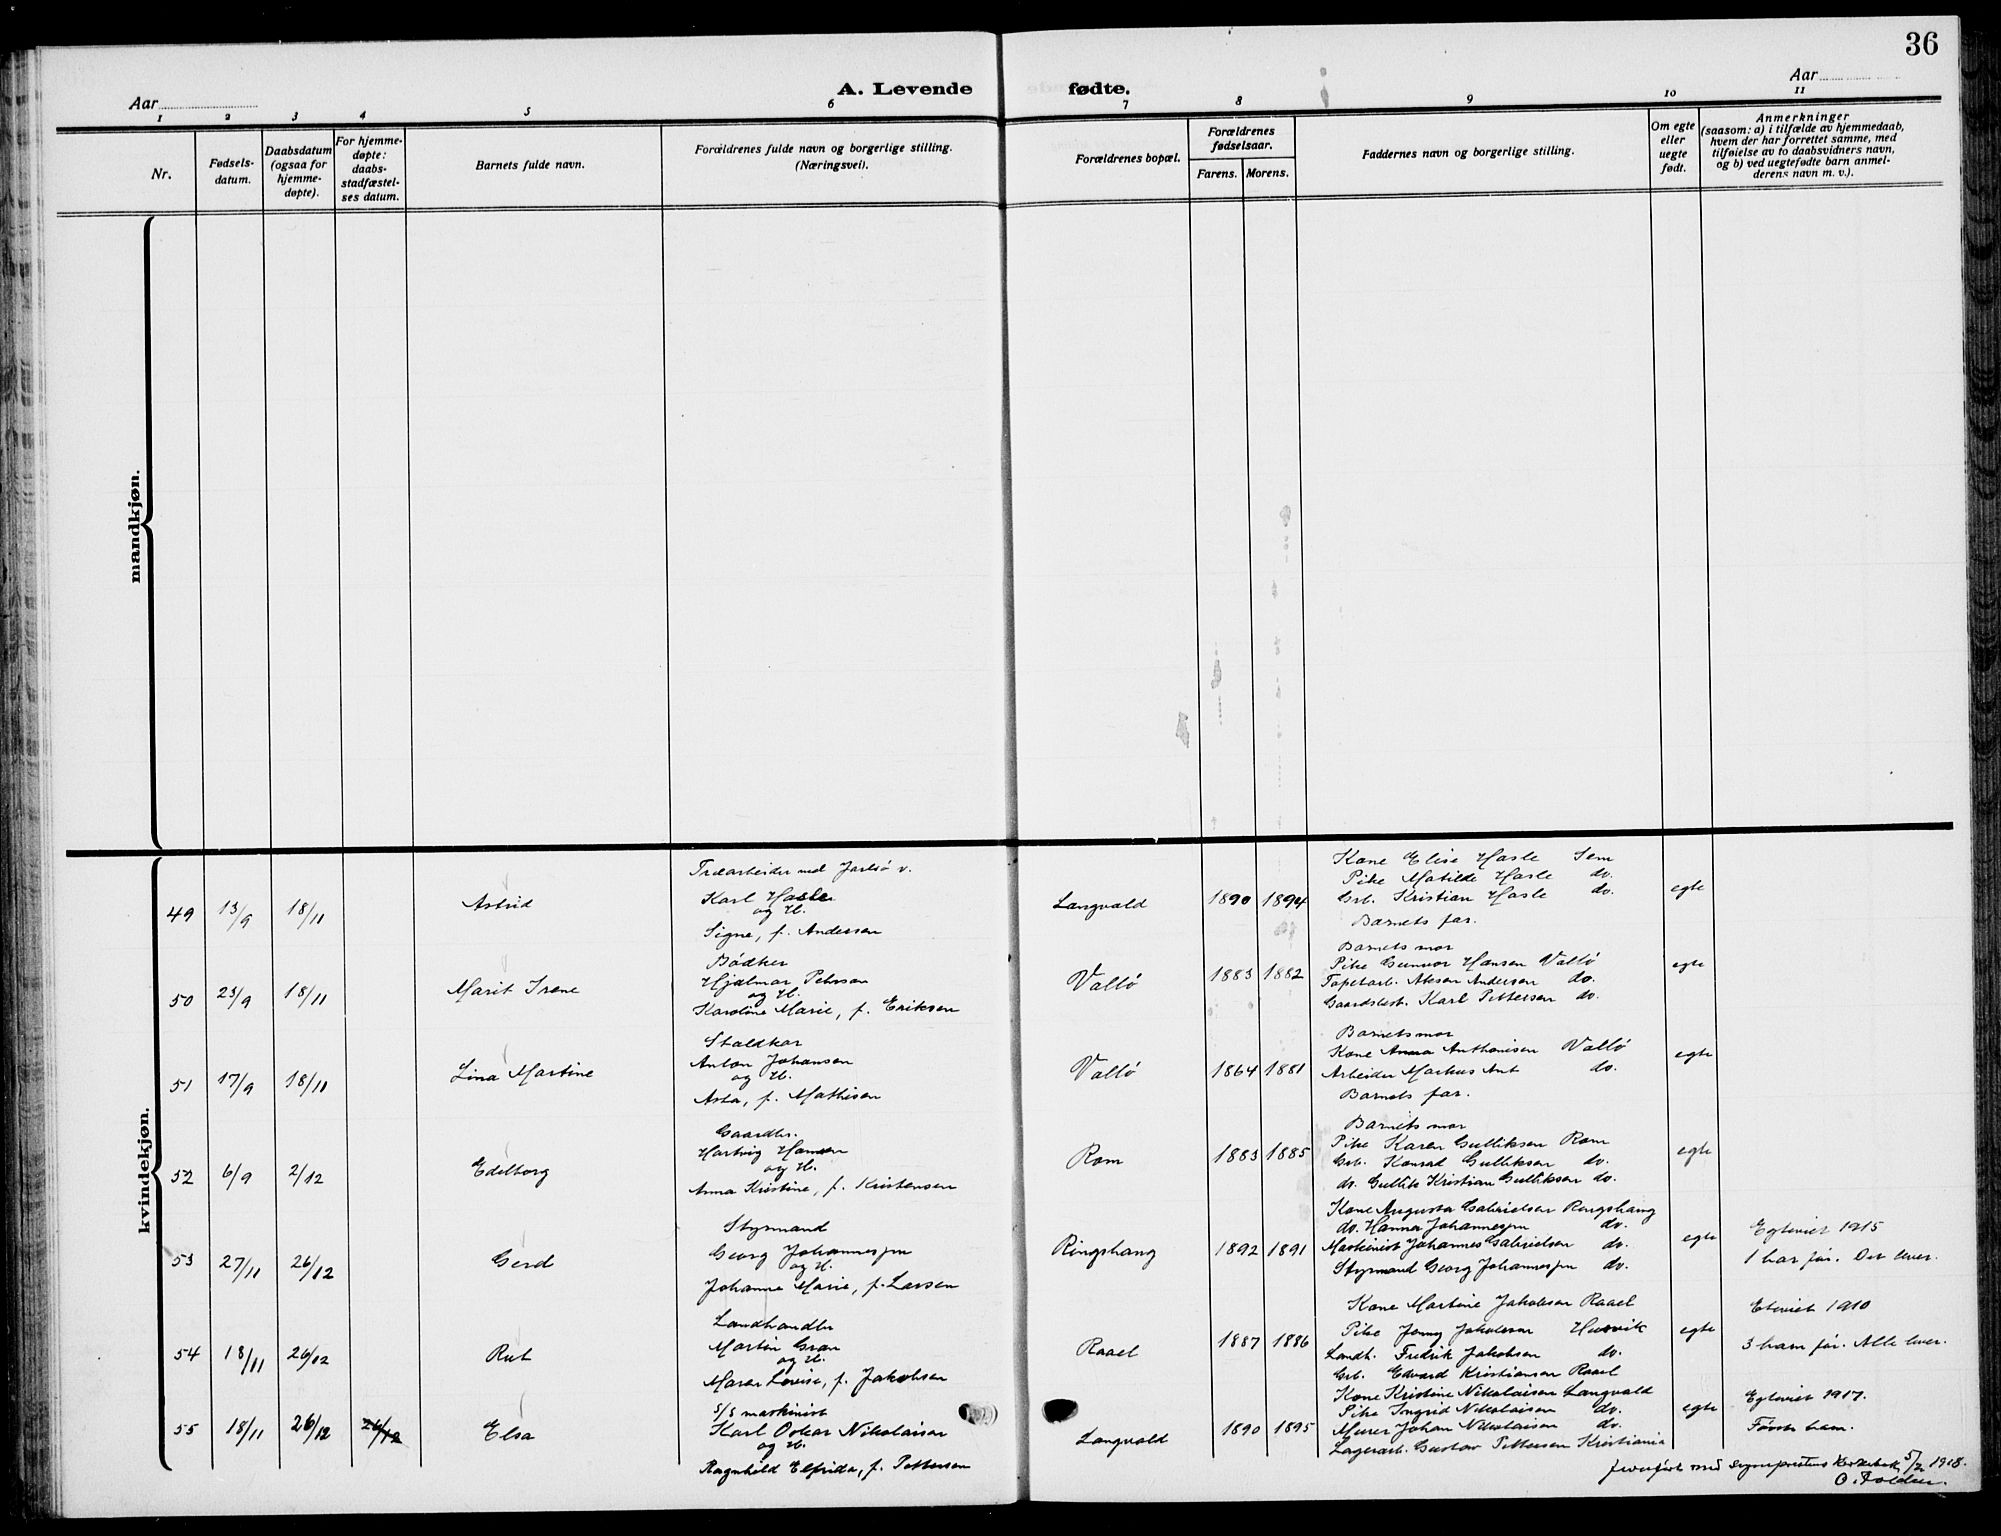 36
Aar
A. Levende fødte.
Aar
1 2 3 4 5 6 7 8 9 10 11
Nr.
Fødsels-
datum.
Daabsdatum
(ogsaa for
hjemme-
døpte).
For hjemme-
døpte:
daabs-
stadfæstel-
ses datum.
Barnets fulde navn.
Forældrenes fulde navn og borgerlige stilling.
(Næringsvei).
Forældrenes bopæl.
Forældrenes
fødselsaar.
Farens. Morens.
Faddernes navn og borgerlige stilling.
Om egte
eller
uegte
født.
Anmerkninger
(saasom: a) i tilfælde av hjemmedaab,
hvem der har forrettet samme, med
tilføielse av to daabsvidners navn,
og b) ved uegtefødte barn anmel-
derens navn m. v.).
mandkjøn.
kvindekjøn.
49 13/9 18/11
Astrid
Træarbeider ved Jarlsø v.
Karl Hasle
og H.
Signe, f. Andersen
Langvald
1890 1894
Kone Elise Hasle Sem
Pike Matilde Hasle do.
Grb. Kristian Hasle do.
Barnets far.
egte
50 23/9 18/11
Marit Irene
Bødker
Hjalmar Pehrson
og H.
Karoline Marie, f. Eriksen
Vallø
1883 1882
Barnets mor
Pike Gunvor Hansen Vallø
Tapetarb. Aksen Andersen do.
Gaardsbest. Karl Pettersen do.
egte
51 17/9 18/11
Lina Martine
Staldkar
Anton Johansen
og H.
Asta, f. Mathisen
Vallø
1864 1881
Barnets mor
Kone Anna Anthonisen Vallø
Arbeider Markus Ant do.
Barnets far.
egte
52 6/9 2/12
Edelborg
Gaardbr.
Hartvig Hansen
og H.
Anna Kristine, f. Kristensen
Rom
1883 1885
Barnets mor
Pike Karen Gulliksen Rom
Grb. Konrad Gulliksen do.
do. Gullik Kristian Gulliksen do.
egte
53 27/11 26/12
Gerd
Styrmand
Georg Johannesen
og H.
Johanne Marie, f. Larsen
Ringshaug
1892 1891
Kone Augusta Gabrielsen Ringshaug
do. Hanna Johannesen do.
Maskinist Johannes Gabrielsen do.
Styrmand Georg Johannesen do.
egte
Egteviet 1915
1 har før. Det lever.
54 18/11 26/12
Rut
Landhandler
Martin Gran
og H.
Maren Lovise, f. Jakobsen
Raael
1887 1886
Kone Martine Jakobsen Raael
Pike Jenny Jakobsen Husvik
Landh. Fredrik Jakobsen do.
Grb. Edvard Kristiansen Raael
egte
Eteviet 1910
3 barn før. Alle lever.
55 18/11 26/12 26/12
Elsa
S/S maskinist
Karl Oskar Nikolaisen
og H.
Ragnhild Elfrida, f. Pettersen
Langvald
1890 1895
Kone Kristine Nikolaisen Langvald
Pike Ingrid Nikolaisen do.
Murer Johan Nikolaisen do.
Lagerarb. Gustav Pettersen Kristiania
egte
Egteviet 1917.
Første barn.
Jevnført med sogneprestens kirkebok 5/2 1918.